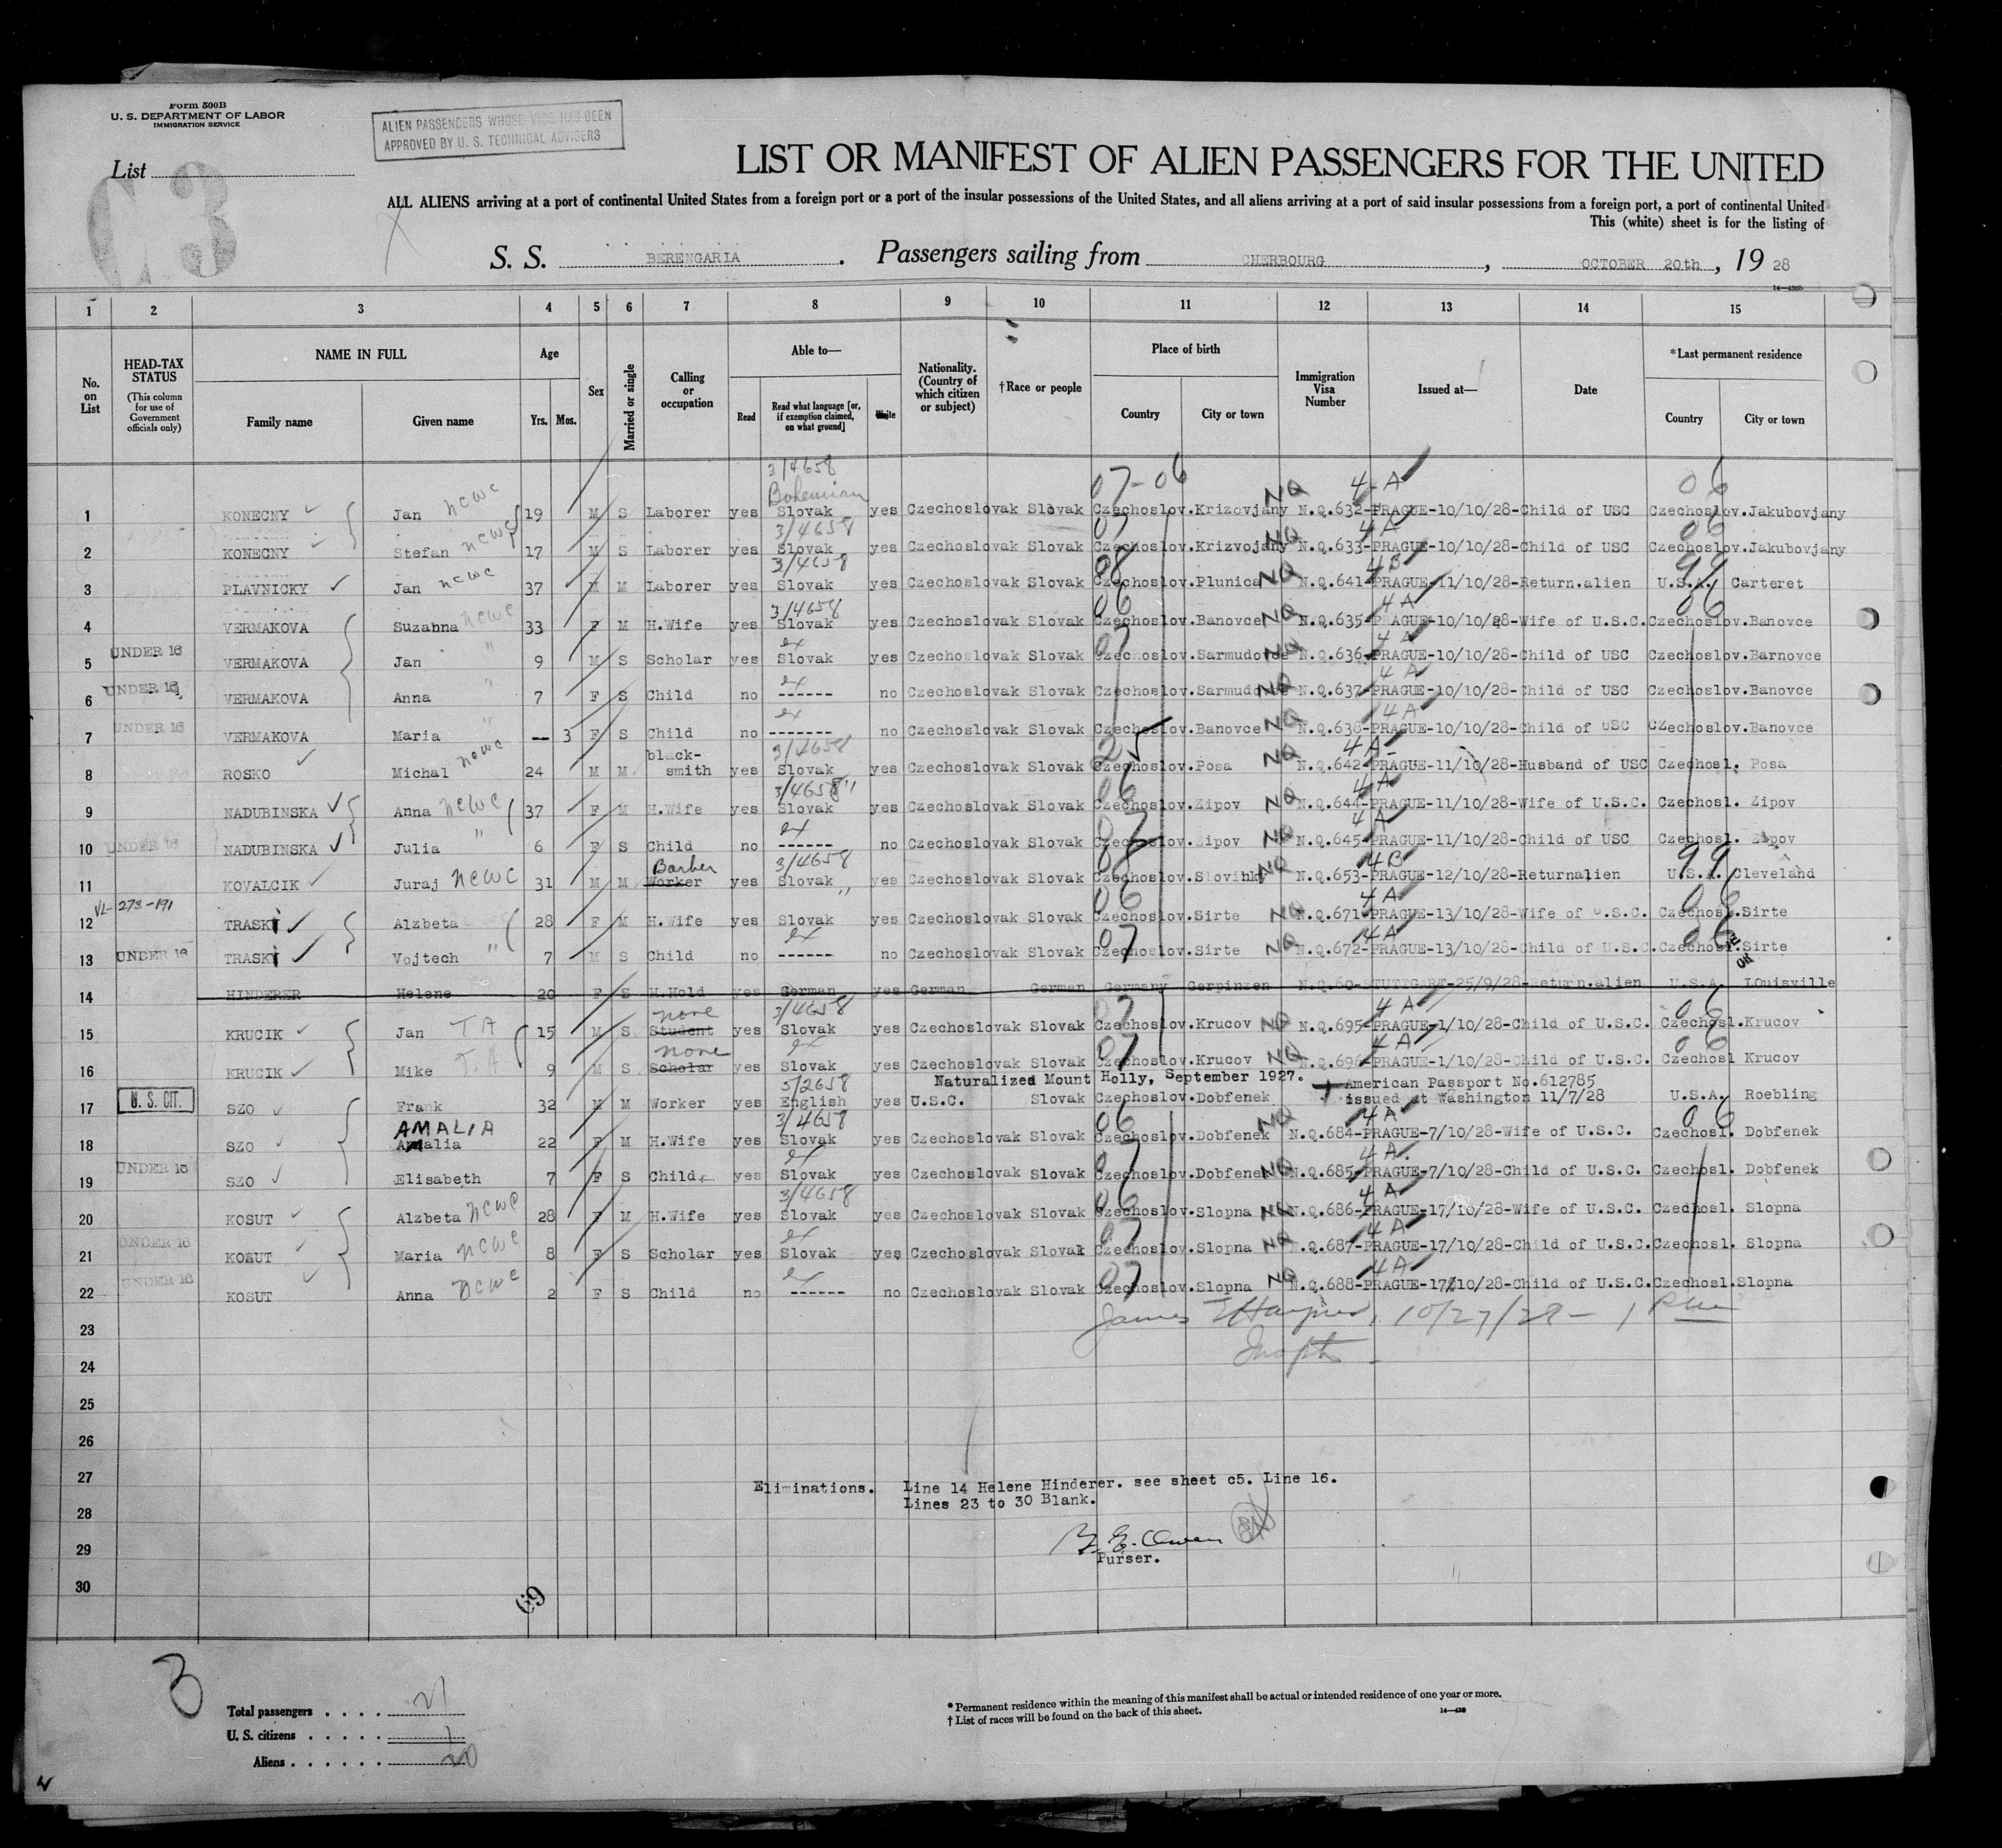 Form 500B
U. S. DEPARTMENT OF LABOR
IMMIGRATION SERVICE
ALIEN PASSENGERS WHOSE VISE HAS BEEN
APPROVED BY U. S. TECHNICAL ADVISERS
List
C3
LIST OR MANIFEST OF ALIEN PASSENGERS FOR THE UNITED
ALL ALIENS arriving at a port of continental United States from a foreign port or a port of the insular possessions of the United States, and all aliens arriving at a port of said insular possessions from a foreign port, a port of continental United
This (white) sheet is for the listing of
S. S. BERENGARIA. Passengers sailing from CHERBOURG, OCTOBER 20th, 19 28
1 2 3 4 5 6 7 8 9 10 11 12 13 14 15
No. on List
HEAD-TAX STATUS (This column for use of Government officials only)
NAME IN FULL Family name Given name
Age Yrs. Mos.
Sex
Married or single
Calling or occupation
Able to— Read Read what language [or, if exemption claimed, on what ground] Write
Nationality. (Country of which citizen or subject)
†Race or people
Place of birth Country City or town
Immigration Visa Number
Issued at—
Date
*Last permanent residence Country City or town
3/4658 07-06 4-A 06
Bohemian
1 KONECNY Jan ncwc 19 M S Laborer yes Slovak yes Czechoslovak Slovak Czechoslov.Krizovjany NQ N.Q.632-PRAGUE-10/10/28-Child of USC Czechoslov.Jakubovjany
3/4658 07 4A 06
2 KONECNY Stefan ncwc 17 M S Laborer yes Slovak yes Czechoslovak Slovak Czechoslov.Krizvojany NQ N.Q.633-PRAGUE-10/10/28-Child of USC Czechoslov.Jakubovjany
3/4658 08 4B 99
3 PLAVNICKY Jan ncwc 37 M M Laborer yes Slovak yes Czechoslovak Slovak Czechoslov.Plunica NQ N.Q.641-PRAGUE-11/10/28-Return.alien U.S.A. Carteret
3/4658 06 4A 06
4 VERMAKOVA Suzabna ncwc 33 F M H.Wife yes Slovak yes Czechoslovak Slovak Czechoslov.Banovce NQ N.Q.635-PRAGUE-10/10/28-Wife of U.S.C.Czechoslov.Banovce
ex 07 4A
5 UNDER 16 VERMAKOVA Jan " 9 M S Scholar yes Slovak yes Czechoslovak Slovak Czechoslov.Sarmudovce NQ N.Q.636-PRAGUE-10/10/28-Child of USC Czechoslov.Barnovce
ex 4A
6 UNDER 16 VERMAKOVA Anna " 7 F S Child no ------ no Czechoslovak Slovak Czechoslov.Sarmudovce NQ N.Q.637-PRAGUE-10/10/28-Child of USC Czechoslov.Banovce
ex 4A
7 UNDER 16 VERMAKOVA Maria " — 3 F S Child no ------- no Czechoslovak Slovak Czechoslov.Banovce NQ N.Q.638-PRAGUE-10/10/28-Child of USC CZechoslov.Banovce
black- 3/4658 25 4A
8 ROSKO Michal ncwc 24 M M smith yes Slovak yes Czechoslovak Slovak Czechoslov.Posa NQ N.Q.642-PRAGUE-11/10/28-Husband of USC Czechosl. Posa
3/4658 06 4A
9 NADUBINSKA Anna ncwc 37 F M H.Wife yes Slovak yes Czechoslovak Slovak Czechoslov.Zipov NQ N.Q.644-PRAGUE-11/10/28-Wife of U.S.C. Czechosl. Zipov
ex 07 4A
10 UNDER 16 NADUBINSKA Julia " 6 F S Child no ------ no Czechoslovak Slovak Czechoslov.Zipov NQ N.Q.645-PRAGUE-11/10/28-Child of USC Czechosl. Zipov
Barber 3/4658 08 4B 99
11 KOVALCIK Juraj ncwc 31 M M Worker yes Slovak yes Czechoslovak Slovak Czechoslov.Slovihky NQ N.Q.653-PRAGUE-12/10/28-Returnalien U.S.A. Cleveland
VL-273-191 06 4A 06
12 TRASKI Alzbeta 28 F M H.Wife yes Slovak yes Czechoslovak Slovak Czechoslov.Sirte NQ N.Q.671-PRAGUE-13/10/28-Wife of U.S.C. Czechosl.Sirte
ex 07 4A 06
13 UNDER 16 TRASKI Vojtech " 7 M S Child no ------ no Czechoslovak Slovak Czechoslov.Sirte NQ N.Q.672-PRAGUE-13/10/28-Child of U.S.C.Czechosl.Sirte
14 HINDERER Helene 20 F S H.Hold yes German yes German German Germany Gerpinzen N.Q.60-STUTTGART-25/9/28-Return.alien U.S.A. LOuisville
none 3/4658 07 4A 06
15 KRUCIK Jan TA 15 M S Student yes Slovak yes Czechoslovak Slovak Czechoslov.Krucov NQ N.Q.695-PRAGUE-1/10/28-Child of U.S.C. Czechosl.Krucov
none ex 07 4A 06
16 KRUCIK Mike T.A 9 M S Scholar yes Slovak yes Czechoslovak Slovak Czechoslov.Krucov NQ N.Q.696-PRAGUE-1/10/28-Child of U.S.C. Czechosl Krucov
5/2658 Naturalized Mount Holly, September 1927. American Passport No.612785
17 U. S. CIT. SZO Frank 32 M M Worker yes English yes U.S.C. Slovak Czechoslov.Dobfenek issued at Washington 11/7/28 U.S.A. Roebling
AMALIA 3/4658 06 4A 06
18 SZO Amalia 22 F M H.Wife yes Slovak yes Czechoslovak Slovak Czechoslov.Dobfenek NQ N.Q.684-PRAGUE-7/10/28-Wife of U.S.C. Czechosl. Dobfenek
ex 07 4A
19 UNDER 16 SZO Elisabeth 7 F S Child yes Slovak yes Czechoslovak Slovak Czechoslov.Dobfenek NQ N.Q.685-PRAGUE-7/10/28-Child of U.S.C. Czechosl. Dobfenek
3/4658 06 4A
20 KOSUT Alzbeta ncwc 28 F M H.Wife yes Slovak yes Czechoslovak Slovak Czechoslov.Slopna NQ N.Q.686-PRAGUE-17/10/28-Wife of U.S.C. Czechosl. Slopna
ex 07 4A
21 UNDER 16 KOSUT Maria ncwc 8 F S Scholar yes Slovak yes Czechoslovak Slovak Czechoslov.Slopna NQ N.Q.687-PRAGUE-17/10/28-Child of U.S.C.Czechosl. Slopna
ex 07 4A
22 UNDER 16 KOSUT Anna ncwc 2 F S Child no ------ no Czechoslovak Slovak Czechoslov.Slopna NQ N.Q.688-PRAGUE-17/10/28-Child of U.S.C.Czechosl.Slopna
23 James 10/27/28 -
24
25
26
27 Eliminations. Line 14 Helene Hinderer. see sheet c5. Line 16.
28 Lines 23 to 30 Blank.
29 Owen
Purser.
30
69
3
Total passengers . . . . 21
U. S. citizens . . . . . 1
Aliens . . . . . . 20
* Permanent residence within the meaning of this manifest shall be actual or intended residence of one year or more.
† List of races will be found on the back of this sheet.
14—430